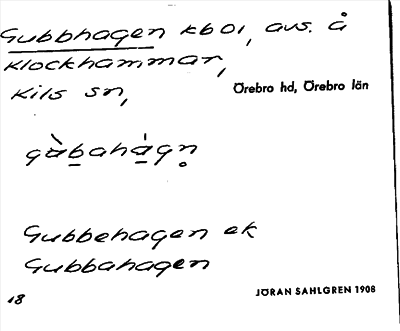 Gubbhagen kbol, avs. å
Klockhammar,
Kils sn,
Örebro hd, Örebro län
gàb̲ahá̲gn̥
Gubbehagen ek
Gubbahagen
18
JÖRAN SAHLGREN 1908